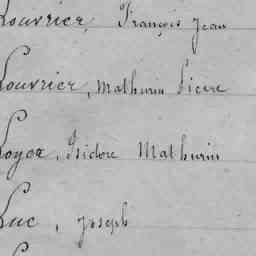 Louvrier, François Jean
Louvrier, Mathurin Pierre
Loyer, Isidore Mathurin
Luc, Joseph